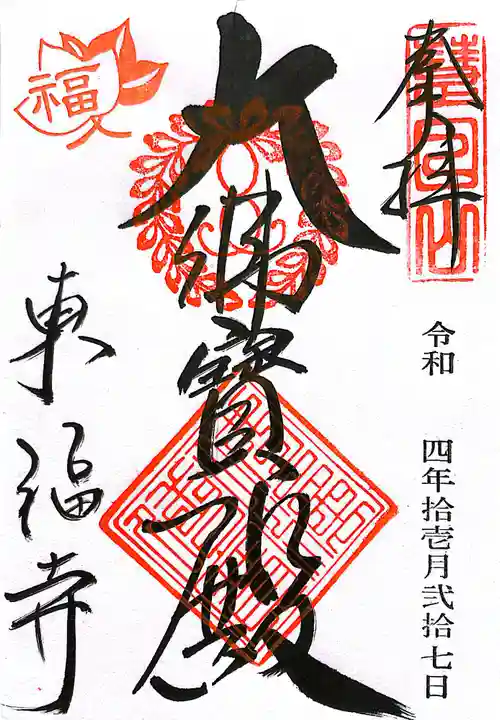 奉拝
慧日山
令和 四年拾壱月弐拾七日
大佛寳殿
東福寺
福